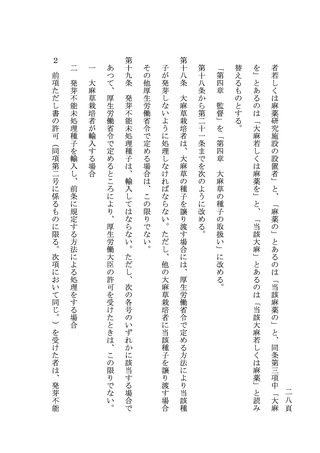 二八頁
者若しくは麻薬研究施設の設置者」と、「麻薬の」とあるのは「当該麻薬の」と、同条第三項中「大麻
を」とあるのは「大麻若しくは麻薬を」と、「当該大麻」とあるのは「当該大麻若しくは麻薬」と読み
替えるものとする。
「第四章　監督」を「第四章　大麻草の種子の取扱い」に改める。
第十八条から第二十一条までを次のように改める。
第十八条　大麻草栽培者は、大麻草の種子を譲り渡す場合には、厚生労働省令で定める方法により当該種
子が発芽しないように処理しなければならない。ただし、他の大麻草栽培者に当該種子を譲り渡す場合
その他厚生労働省令で定める場合は、この限りでない。
第十九条　発芽不能未処理種子は、輸入してはならない。ただし、次の各号のいずれかに該当する場合で
あつて、厚生労働省令で定めるところにより、厚生労働大臣の許可を受けたときは、この限りでない。
一　大麻草栽培者が輸入する場合
二　発芽不能未処理種子を輸入し、前条に規定する方法による処理をする場合
２　前項ただし書の許可（同項第二号に係るものに限る。次項において同じ。）を受けた者は、発芽不能